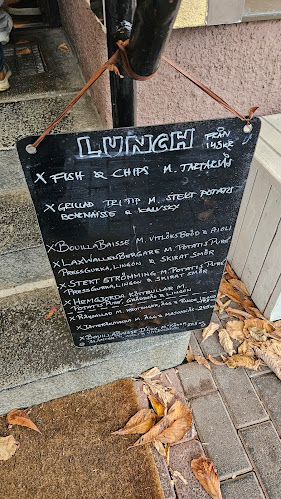 LUNCH FRÅN
145KR
X FISH & CHIPS M. TARTARSÅS
X GRILLAD TRI TIP M. STEKT POTATIS
BEARNAISE & KALVSKY
X BOUILLABAISSE M. VITLÖKSBRÖD & AIOLI
X LAXWALLENBERGARE M. POTATIS PURÉ
PRESSGURKA, LINGON & SKIRAT SMÖR
X STEKT STRÖMMING M. POTATIS PURÉ
PRESSGURKA, LINGON & SKIRAT SMÖR
X HEMGJORDA KÖTTBULLAR M.
POTATIS PURÉ, GRÄDDSÅS & LINGON
X RÄKSALLAD M. ÄGG &
X JÄTTERÄKMACKA M. ÄGG &
X BOUILLABAISSE